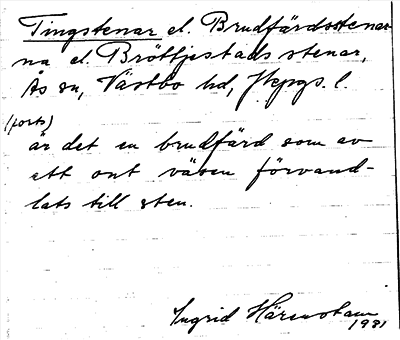 Tingstenar el. Brudfärdsstenar-
na el. Bröttjestads stenar,
Ås sn, Västbo hd, Jkpgs. l.
(forts)
är det en brudfärd som av
ett ont väsen förvand-
lats till sten.
Ingrid
1981